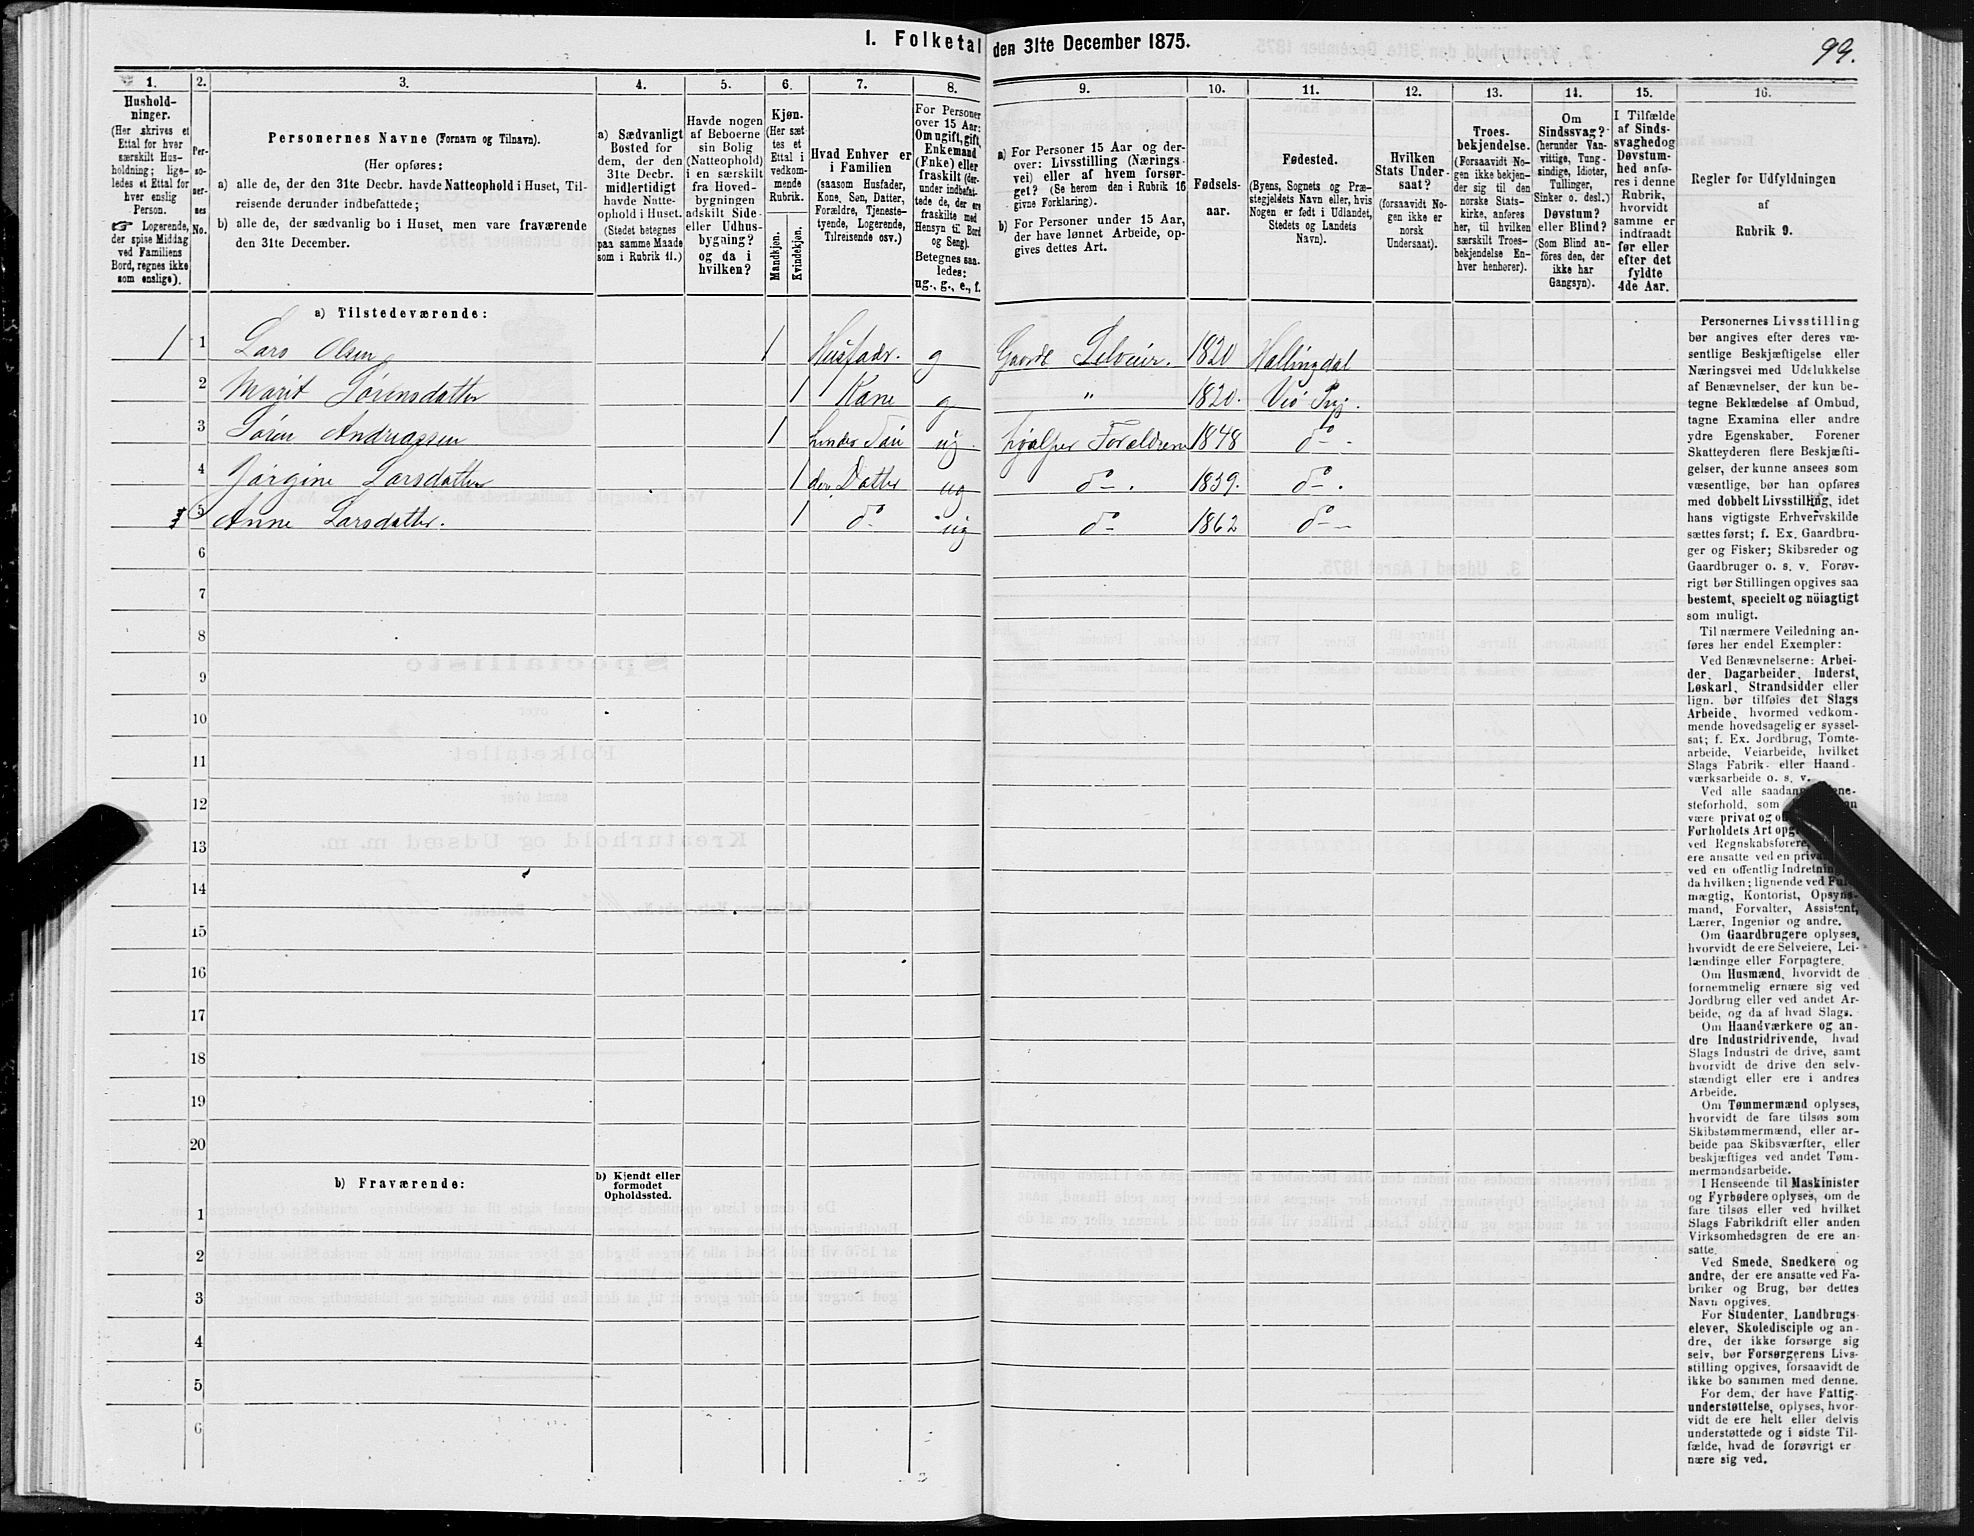 I. Folketal den 31te December 1875.
99.
1.
Hushold-
ninger.
(Her skrives et
Ettal for hver
særskilt Hus-
holdning; lige-
ledes et Ettal for
hver enslig
Person.
☞ Logerende,
der spise Middag
ved Familiens
Bord, regnes ikke
som enslige).
2.
Per-
so-
ner-
nes
No.
3.
Personernes Navne (Fornavn og Tilnavn).
(Her opføres:
a) alle de, der den 31te Decbr. havde Natteophold i Huset, Til-
reisende derunder indbefattede;
b) alle de, der sædvanlig bo i Huset, men vare fraværende
den 31te December.
4.
a) Sædvanligt
Bosted for
dem, der den
31te Decbr.
midlertidigt
havde Natte-
ophold i Huset.
(Stedet betegnes
paa samme Maade
som i Rubrik 11.)
5.
Havde nogen
af Beboerne
sin Bolig
(Natteophold)
i en særskilt
fra Hoved-
bygningen
adskilt Side-
eller Udhus-
bygning?
og da i
hvilken?
6.
Kjøn.
(Her sæt-
tes et
Ettal i
vedkom-
mende
Rubrik.
Mandkjøn.
Kvindekjøn.
7.
Hvad Enhver er
i Familien
(saasom Husfader,
Kone, Søn, Datter,
Forældre, Tjeneste-
tyende, Logerende,
Tilreisende osv.)
8.
For Personer
over 15 Aar:
Om ugift, gift,
Enkemand
(Enke) eller
fraskilt (der-
under indbefat-
tede de, der ere
fraskilte med
Hensyn til Bord
og Seng).
Betegnes saa-
ledes:
ug., g., e., f.
9.
a) For Personer 15 Aar og der-
over: Livsstilling (Nærings-
vei) eller af hvem forsør-
get? (Se herom den i Rubrik 16
givne Forklaring).
b) For Personer under 15 Aar,
der have lønnet Arbeide, op-
gives dettes Art.
10.
Fødsels-
aar.
11.
Fødested.
(Byens, Sognets og Præ-
stegjeldets Navn eller, hvis
Nogen er født i Udlandet,
Stedets og Landets
Navn).
12.
Hvilken
Stats Under-
saat?
(forsaavidt No-
gen ikke er
norsk
Undersaat).
13.
Troes-
bekjendelse.
(Forsaavidt No-
gen ikke bekjen-
der sig til den
norske Stats-
kirke, anføres
her, til hvilken
særskilt Troes-
bekjendelse En-
hver henhører).
14.
Om
Sindssvag?
(herunder Van-
vittige, Tung-
sindige, Idioter,
Tullinger,
Sinker o. desl.)
Døvstum?
eller Blind?
(Som Blind an-
föres den, der
ikke har
Gangsyn).
15.
I Tilfælde
af Sinds-
svaghed og
Døvstum-
hed anfø-
res i denne
Rubrik,
hvorvidt
samme er
indtraadt
før eller
efter det
fyldte
4de Aar.
16.
Regler for Udfyldningen
af
Rubrik 9.
a) Tilstedeværende:
1 1 Lars Olsen 1 Husfadr. g Gaardb Selveier. 1820 Hallingdal
2 Marit Sørensdatter 1 Kone g " 1820. Viö Prgj.
3 Søren Andreassen 1 Søn ug. hjælper Forældrene 1848 do
4 Jørgine Larsdatter 1 Datter ug do 1859. do
5 Anne Larsdatter. 1 do ug do 1862 do
6
7
8
9
10
11
12
13
14
15
16
17
18
19
20
b) Fraværende:
b) Kjendt eller
formodet
Opholdssted.
1
2
3
4
5
6
Personernes Livsstilling
bør angives efter deres væ-
sentlige Beskjæftigelse eller
Næringsvei med Udelukkelse
af Benævnelser, der kun be-
tegne Beklædelse af Ombud,
tagne Examina eller andre
ydre Egenskaber. Forener
Skatteyderen flere Beskjæfti-
gelser, der kunne ansees som
væsentlige, bør han opføres
med dobbelt Livsstilling, idet
hans vigtigste Erhvervskilde
sættes først; f. Ex. Gaardbru-
ger og Fisker; Skibsreder og
Gaardbruger o. s. v. Forøv-
rigt bør Stillingen opgives saa
bestemt, specielt og nöiagtigt
som muligt.
Til nærmere Veiledning an-
føres her endel Exempler:
Ved Benævnelserne: Arbei-
der, Dagarbeider, Inderst,
Løskarl, Strandsidder eller
lign. bør tilføies det Slags
Arbeide, hvormed vedkom-
mende hovedsagelig er syssel-
sat; f. Ex. Jordbrug, Tomte-
arbeide, Veiarbeide, hvilket
Slags Fabrik- eller Haand-
værksarbeide o. s. v.
Ved alle saadan
steforhold, som
være privat og
Forholdets Art
ved Regnskabsførere,
ere ansatte ved en
ved en offentlig Indretning
da hvilken; lignende ved Ful-
mægtig, Kontorist, Opsyns-
mand, Forvalter, Assistent,
Lærer, Ingeniør og andre.
Om Gaardbrugere oplyses,
hvorvidt de ere Selveiere, Lei-
lændinge eller Forpagtere.
Om Husmænd, hvorvidt de
fornemmelig ernære sig ved
Jordbrug eller ved andet Ar-
beide, og da af hvad Slags.
Om Haandværkere og an-
dre Industridrivende, hvad
Slags Industri de drive, samt
hvorvidt de drive den selv-
stændigt eller ere i andres
Arbeide.
Om Tømmermænd oplyses,
hvorvidt de fare tilsøs som
Skibstømmermænd, eller ar-
beide paa Skibsværfter, eller
beskjæftiges ved andet Tøm-
mermandsarbeide.
I Henseende til Maskinister
og Fyrbødere oplyses, om de
fare tilsøs eller ved hvilket
Slags Fabrikdrift eller anden
Virksomhedsgren de ere an-
satte.
Ved Smede, Snedkere og
andre, der ere ansatte ved Fa-
briker og Brug, bør dettes
Navn opgives.
For Studenter, Landbrugs-
elever, Skoledisciple og an-
dre, der ikke forsørge sig
selv, bør Forsørgerens Livs-
stilling opgives, forsaavidt de
ikke bo sammen med denne.
For dem, der have Fattig-
understøttelse, oplyses, hvor-
vidt de ere helt eller delvis
understøttede og i sidste Til-
fælde, hvad de forøvrigt er-
nære sig ved.